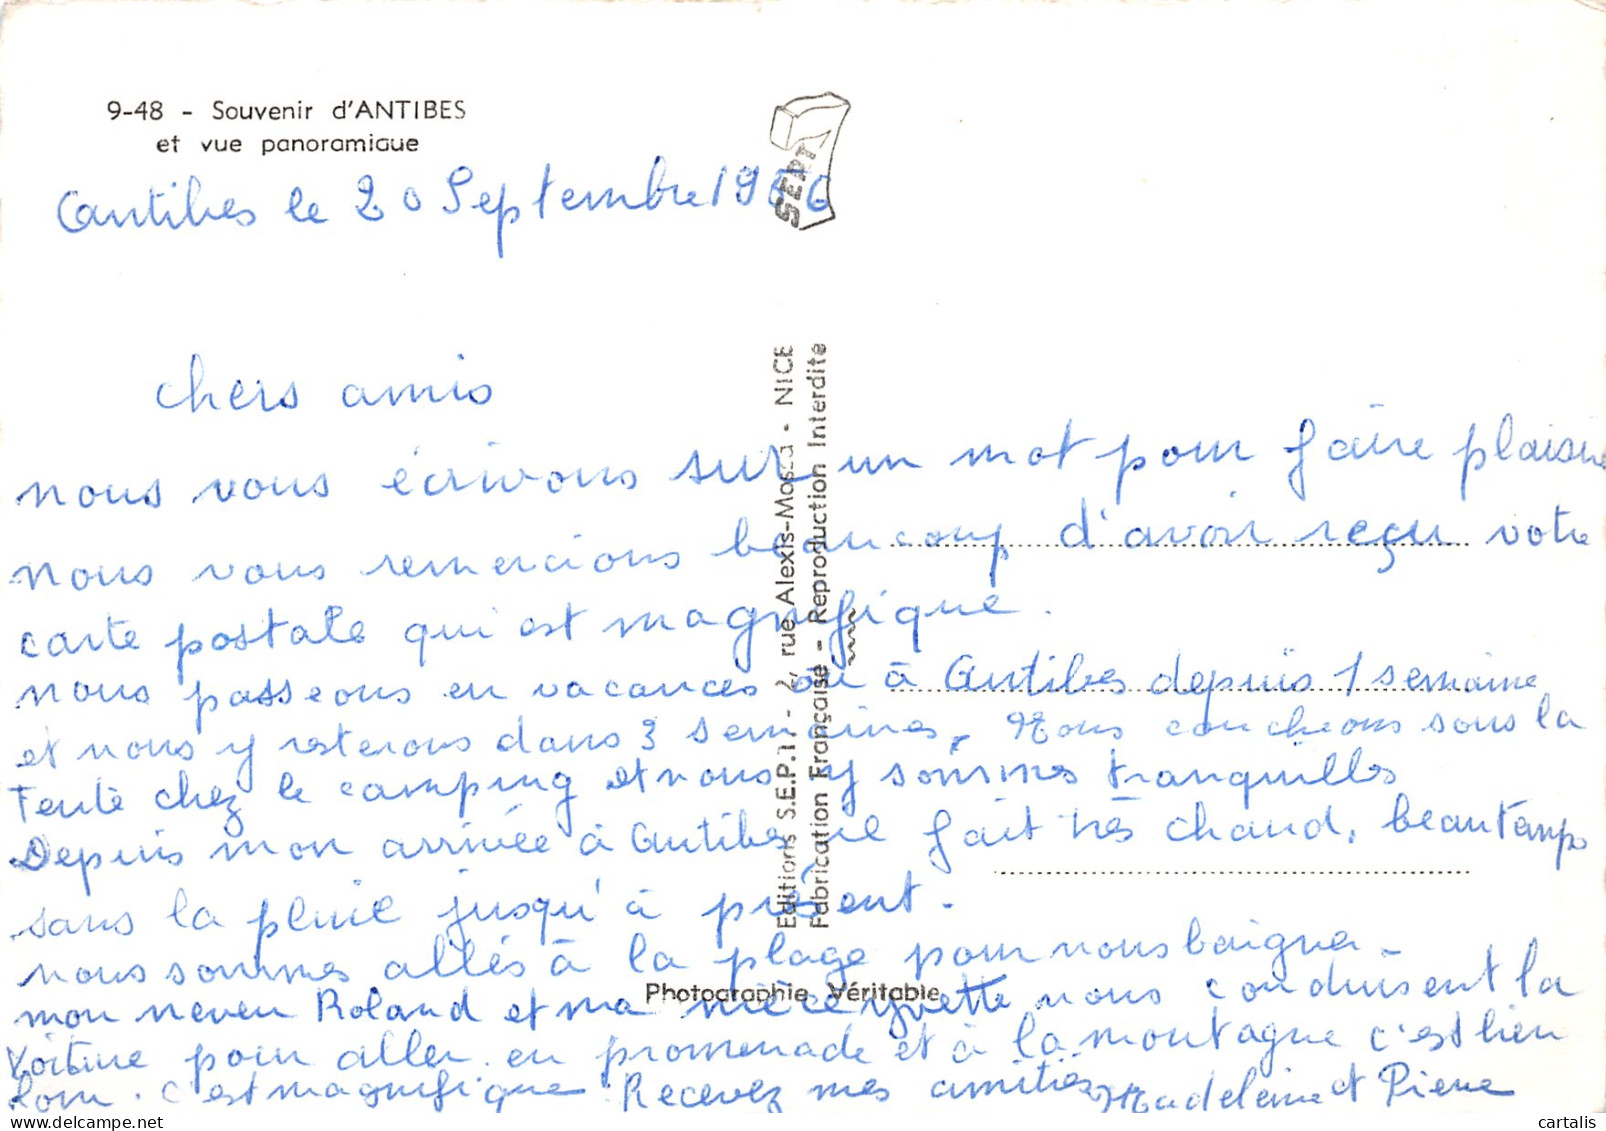 9-48 - Souvenir d'ANTIBES
et vue panoramique
SEPT
Cantibes le 20 Septembre 1966
chers amis
nous vous écrivons sur un mot pour faire plaisir
nous vous remercions beaucoup d'avoir reçu votre
carte postale qui est magnifique.
nous passeons en vacances où à Antibes depuis 1 semaine
et nous y resterons dans 3 semaines, Nous coucheons sous la
Tente chez le camping et nous y sommes tranquilles
Depuis mon arrivée à Antibes il fait très chaud, beautemps
sans la pluie jusqu'à présent.
nous sommes allés à la plage pour nous baigner -
mon neveu Roland et ma nièce yvette nous conduisent la
voiture pour aller en promenade et à la montagne c'est bien
bon. c'est magnifique Recevez mes amitiés Madeleine et Pierre
Editions S.E.P.T. - 2, rue Alexis-Mossa - NICE
Fabrication Française - Reproduction Interdite
Photographie Véritable
cartalis